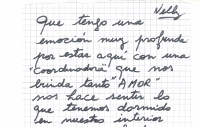 Nelly
Que tengo una
emoción muy profunda
por estar aquí con una
"coordinadora" que nos
brinda tanto "AMOR"
nos hace sentir lo
que tenemos dormido
en nuestro interior